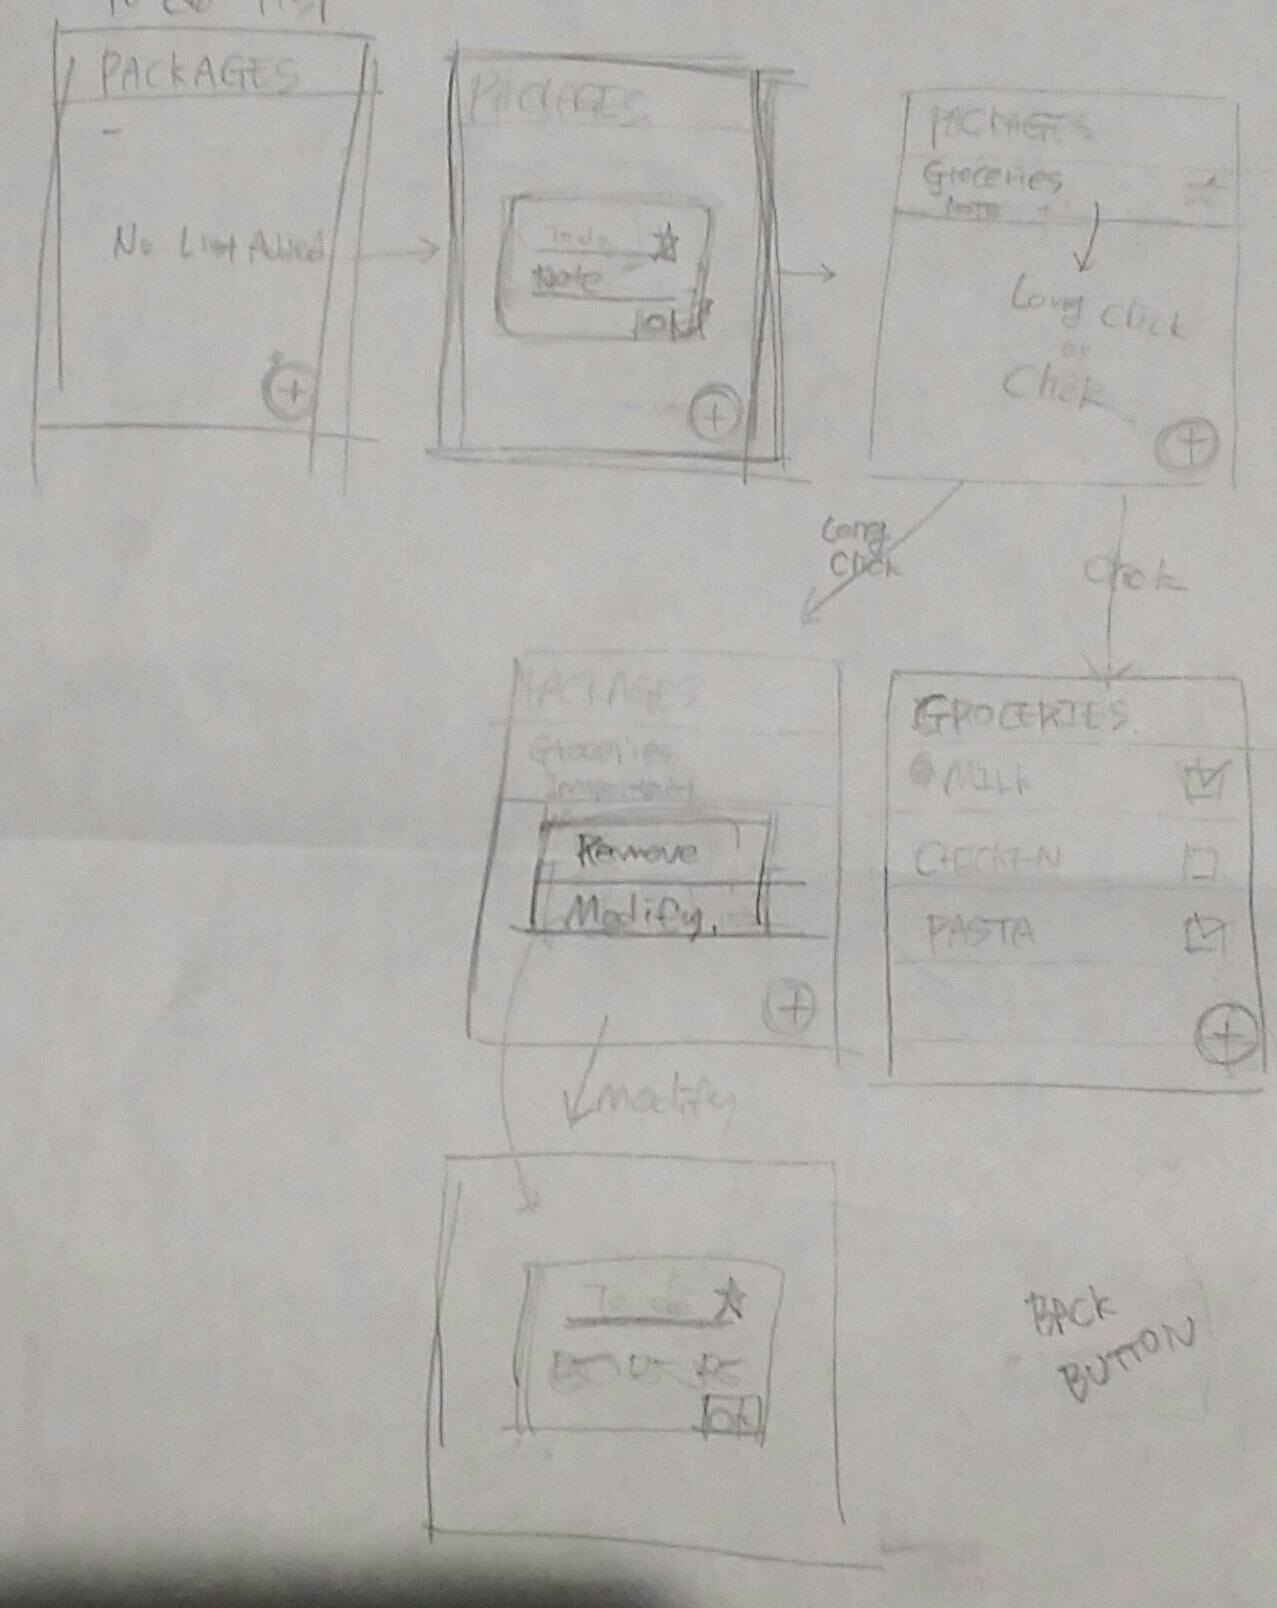 To do list
PACKAGES
No List Added
+
PACKAGES
To do
Note
OK
+
PACKAGES
Groceries
Note
Long Click
or
Click
+
Long
Click
Click
PACKAGES
Groceries
Important
Remove
Modify
+
GROCERIES
MILK
CHICKEN
PASTA
+
Modify
To do
OK
BACK
BUTTON